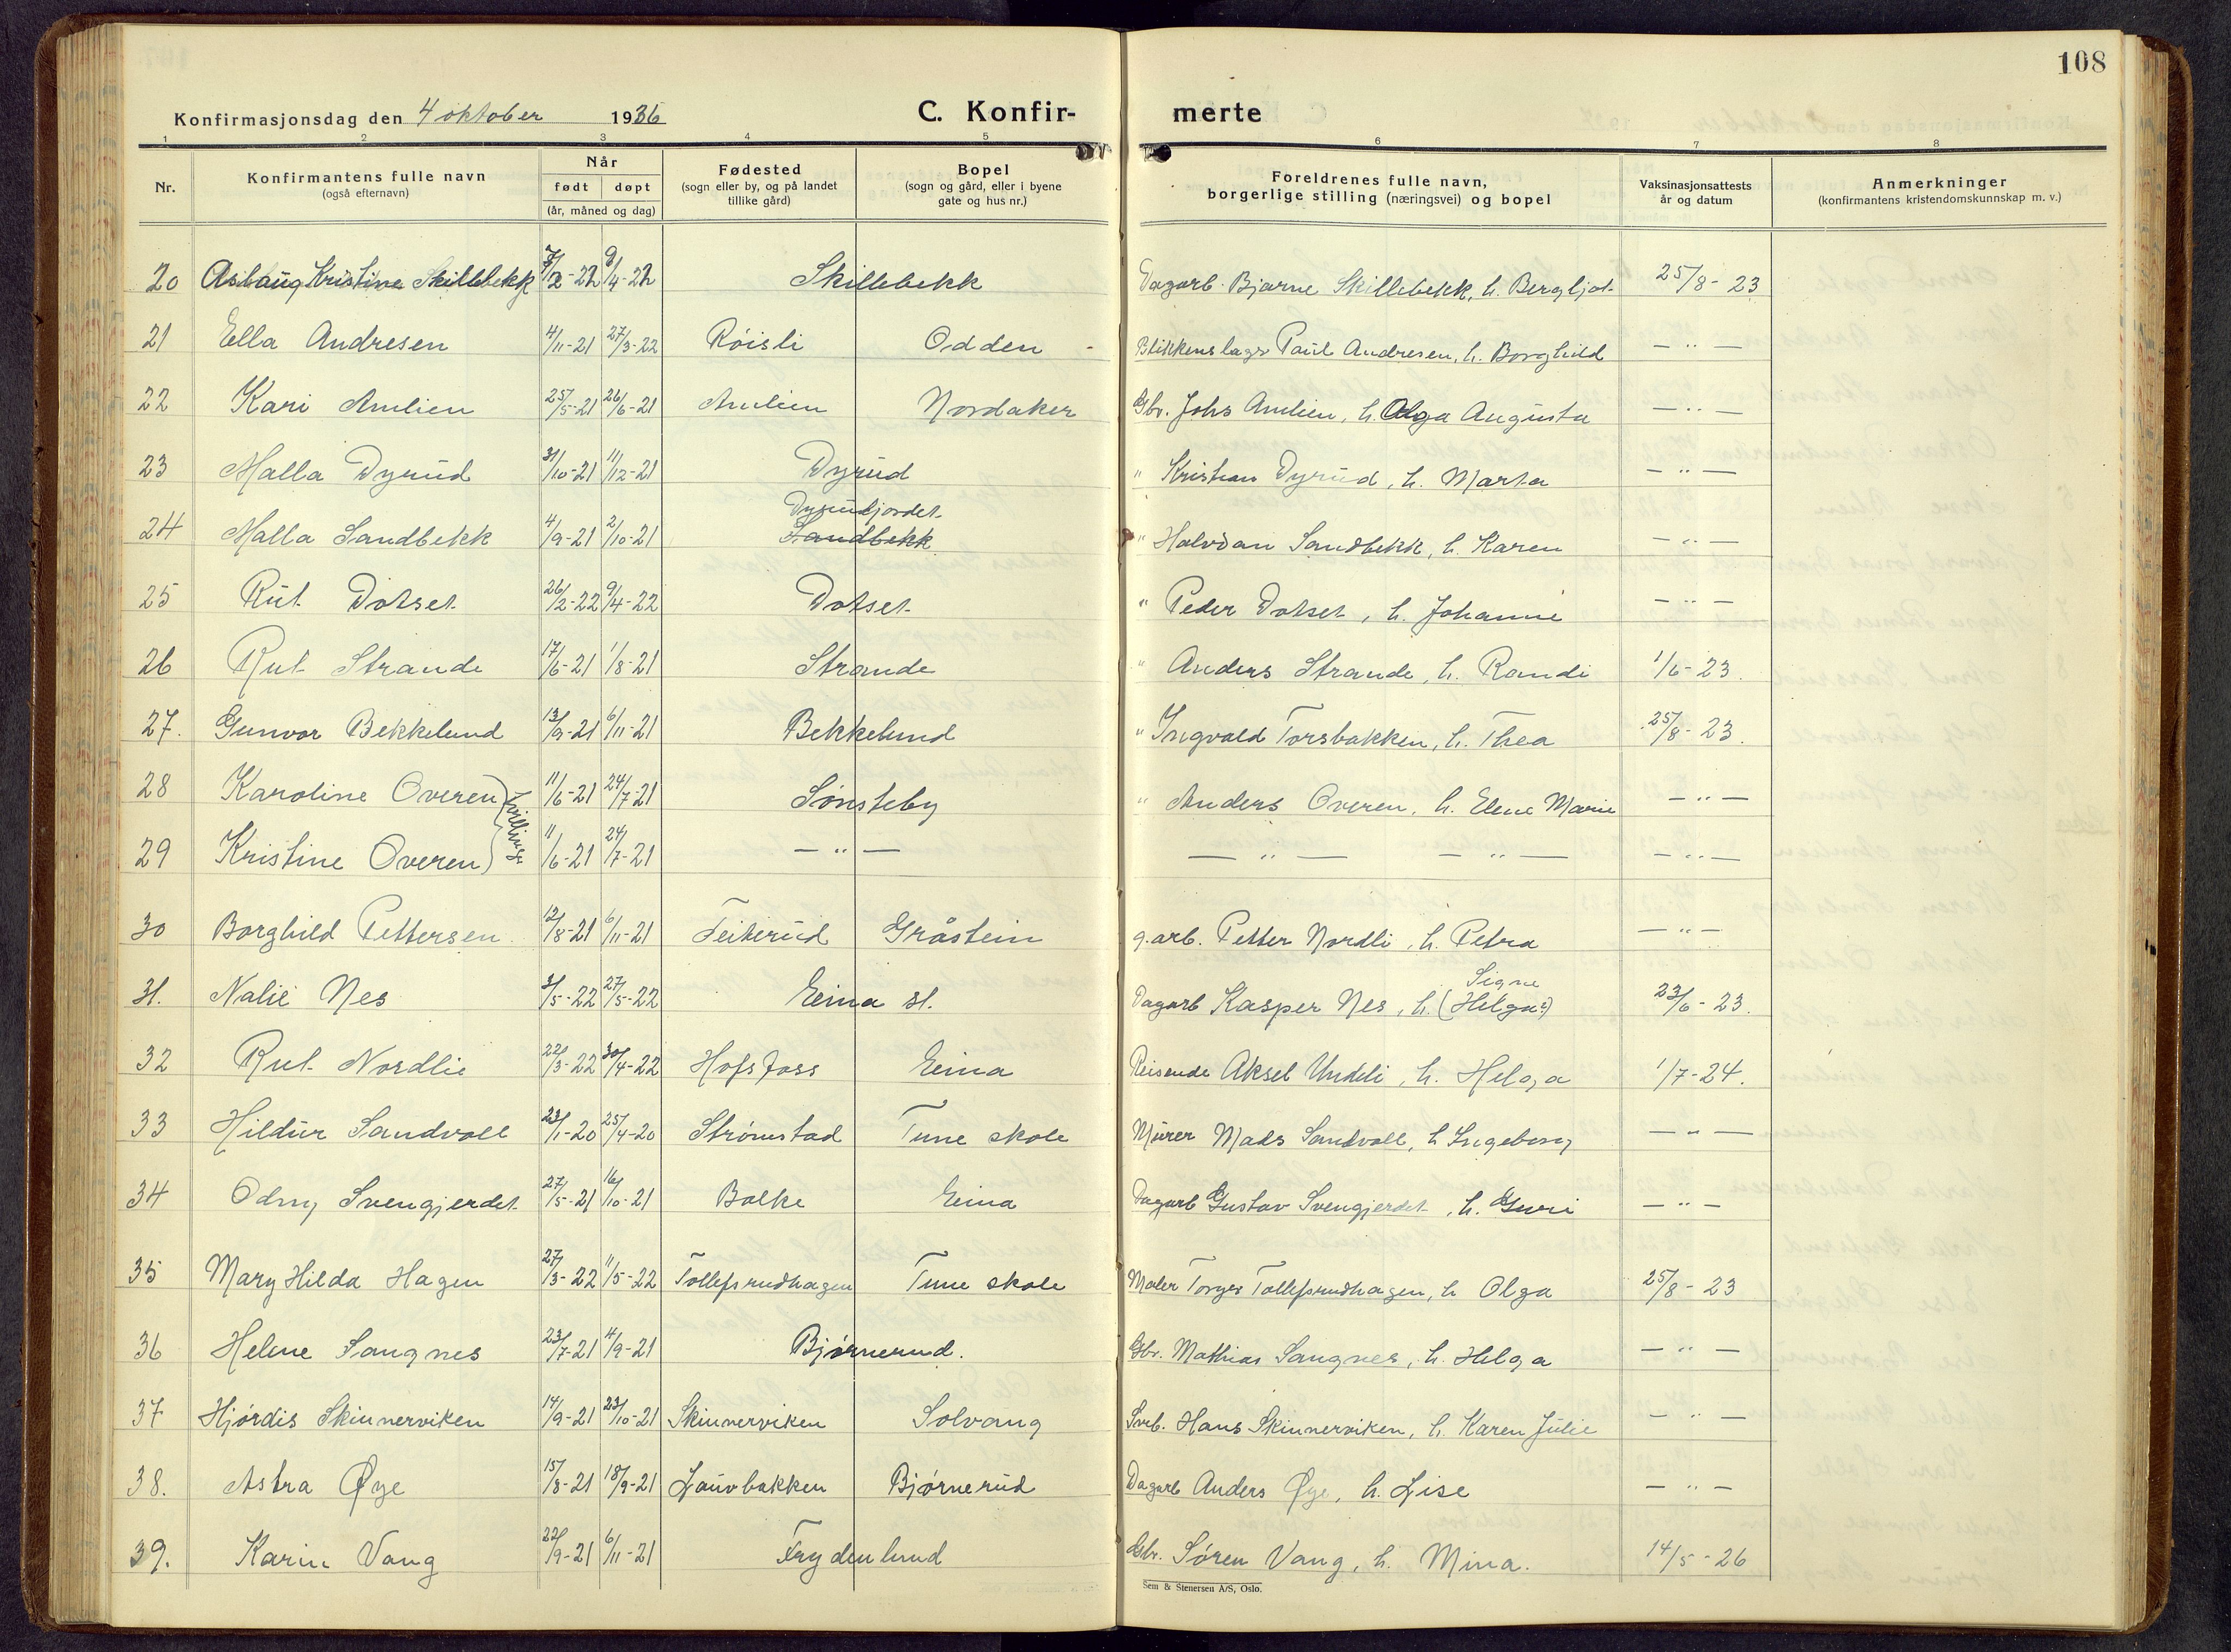 108
Konfirmasjonsdag den 4 oktober 1936 C. Konfir- merte
1 2 3 4 5 6 7 8
Nr. Konfirmantens fulle navn (også efternavn) Når født døpt (år, måned og dag) Fødested (sogn eller by, og på landet tillike gård) Bopel (sogn og gård, eller i byene gate og hus nr.) Foreldrenes fulle navn, borgerlige stilling (næringsvei) og bopel Vaksinasjonsattests år og datum Anmerkninger (konfirmantens kristendomskunnskap m. v.)
20 Aslaug Kristine Skillebekk 7/2-22 9/4-22 Skillebekk Dagarb. Bjarne Skillebekk, h. Bergljot 25/8-23
21 Ella Andresen 4/11-21 27/3-22 Röisli Odden Blikkenslager Paul Andresen, h. Borghild — " —
22 Kari Amlien 25/5-21 26/6-21 Amlien Nordaker Gbr. Johs Amlien, h. Olga Augusta — " —
23 Malla Dyrud 31/10-21 11/12-21 Dyrud " Kristian Dyrud, h. Marta — " —
24 Malla Sandbekk 4/9-21 2/10-21 Dyrudjordet Sandbekk " Halvdan Sandbekk, h. Karen — " —
25 Rut Dotset 26/2-22 9/4-22 Dotset " Peder Dotset, h. Johanne — " —
26 Rut Strande 17/6-21 1/8-21 Strande " Anders Strande, h. Randi 1/6-23.
27. Gunvor Bekkelund 13/9-21 6/11-21 Bekkelund " Ingvald Torsbakken, h. Thea 25/8-23.
28 Karoline Overen 11/6-21 24/7-21 Sønsteby " Anders Overen, h. Elene Marie — " —
tvillinger
29 Kristine Overen 11/6-21 24/7-21 — " — — " — — " — — " —
30 Borghild Pettersen 12/8-21 6/11-21 Feiterud Gråstein g.arb. Petter Nordli, h. Petra — " —
31. Nalie Nes 3/5-22 27/5-22 Eina st. Dagarb Kasper Nes, h. Signe (Helga?) 23/6-23.
32 Rut Nordlie 22/3-22 30/4-22 Hofsfoss Eina Reisende Aksel Undeli, h. Helga 1/7-24.
33 Hildur Sandvoll 23/1-20 25/4-20 Strømstad Tune skole Murer Mads Sandvoll, h Ingeborg — " —
34 Odny Svengjerdet 27/5-21 16/10-21 Bolke Eina Dagarb Gustav Svengjerdet, h. Guri — " —
35 Mary Hilda Hagen 27/3-22 11/5-22 Tollefsrudhagen Tune skole Maler Torger Tollefsrudhagen, h Olga 25/8-23
36 Helene Sangnes 23/7-21 4/9-21 Bjørnerud. Gbr. Mathias Sangnes, h. Helga — " —
37 Hjördis Skinnerviken 14/9-21 23/10-21 Skinnerviken Solvang Hans Skinnerviken, h. Karen Julie — " —
38. Astra Øye 15/8-21 18/9-21 Lauvbakken Bjørnerud Dagarb Anders Øye, h. Lise — " —
39. Karin Vang 22/9-21 6/11-21 Frydenlund Gbr. Søren Vang, h. Mina. 14/5-26
Sem & Stenersen A/S, Oslo.